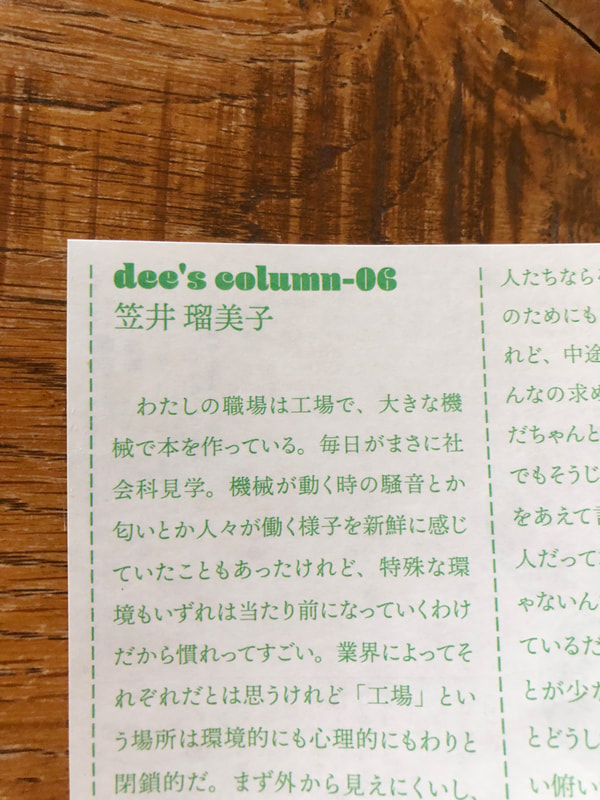 dee's column-06
笠井 瑠美子
わたしの職場は工場で、大きな機
械で本を作っている。毎日がまさに社
会科見学。機械が動く時の騒音とか
匂いとか人々が働く様子を新鮮に感じ
ていたこともあったけれど、特殊な環
境もいずれは当たり前になっていくわけ
だから慣れってすごい。業界によってそ
れぞれだとは思うけれど「工場」とい
う場所は環境的にも心理的にもわりと
閉鎖的だ。まず外から見えにくいし、
人たちなら
のためにも
れど、中途
んなの求め
だちゃんと
でもそうじ
をあえて
人だって
ゃないん
ているだ
とが少な
とどうし
い俯い